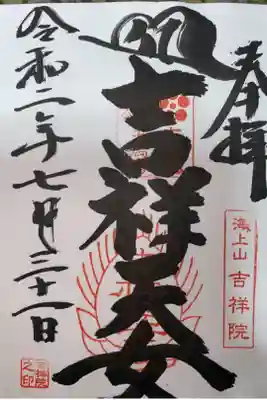 奉拝
海上山 吉祥院
吉祥天女
令和二年七月二十一日